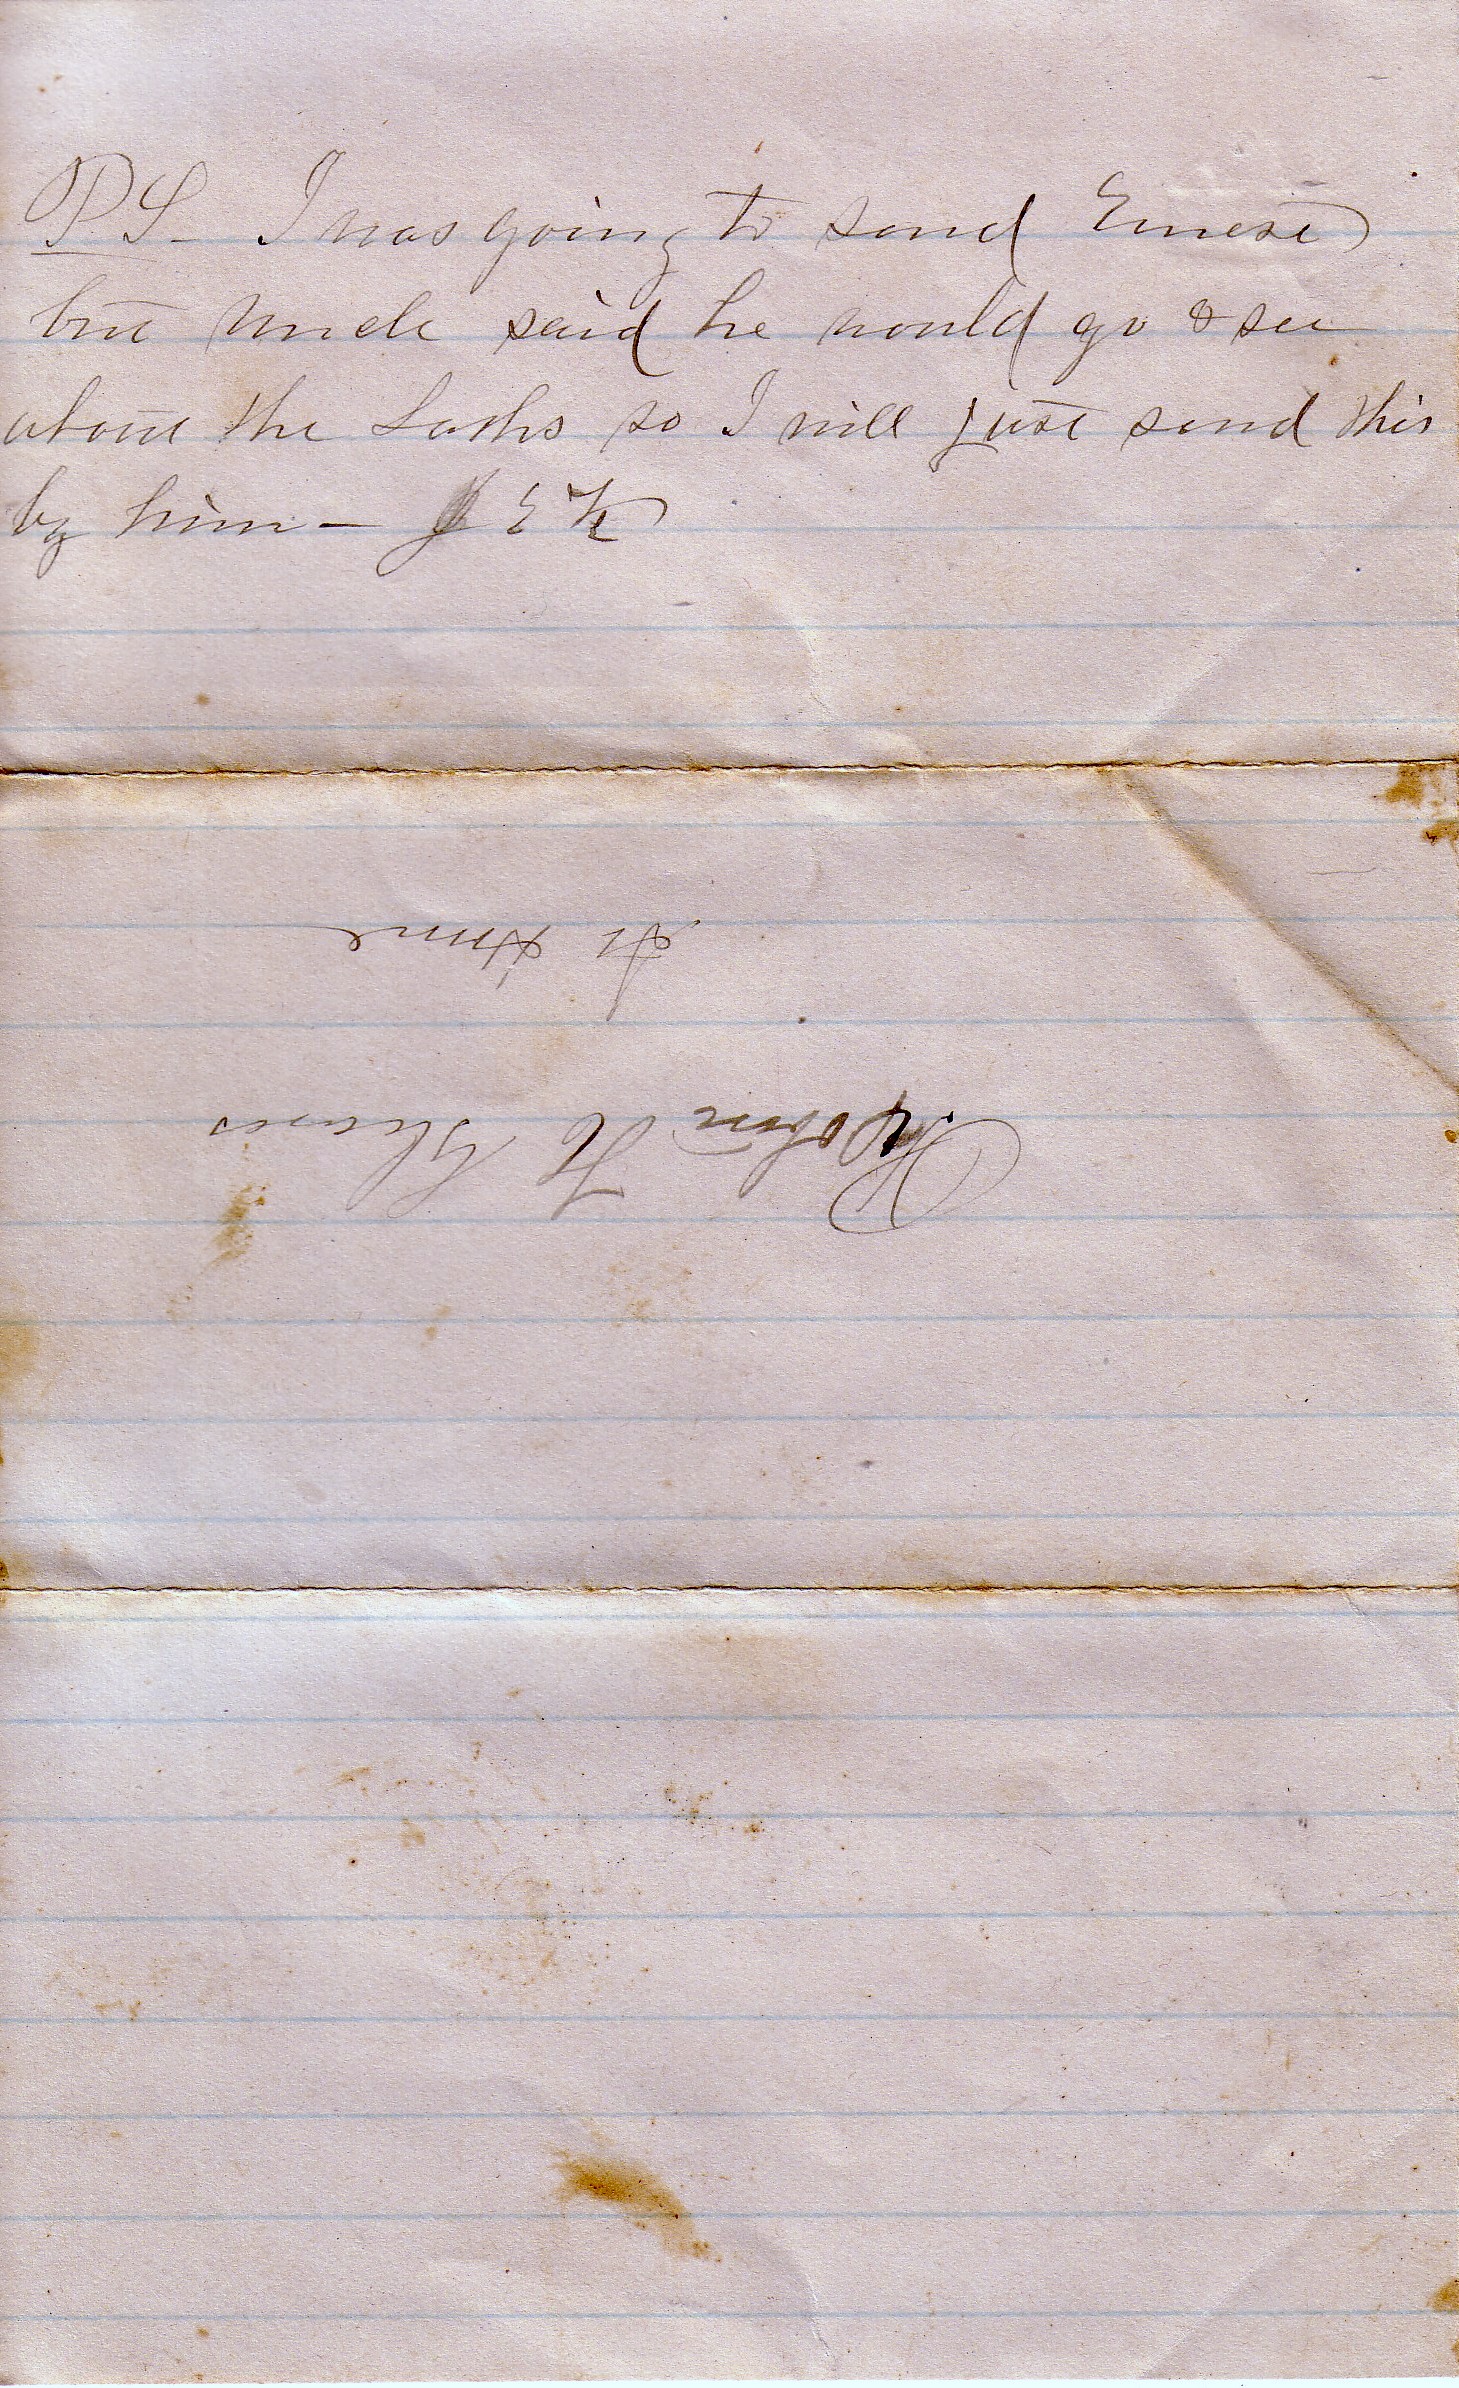 PS- I was going to send Ernest
but Uncle said he would go & see
about the Laths so I will just send this
by him - J E K
Robin H
At Home